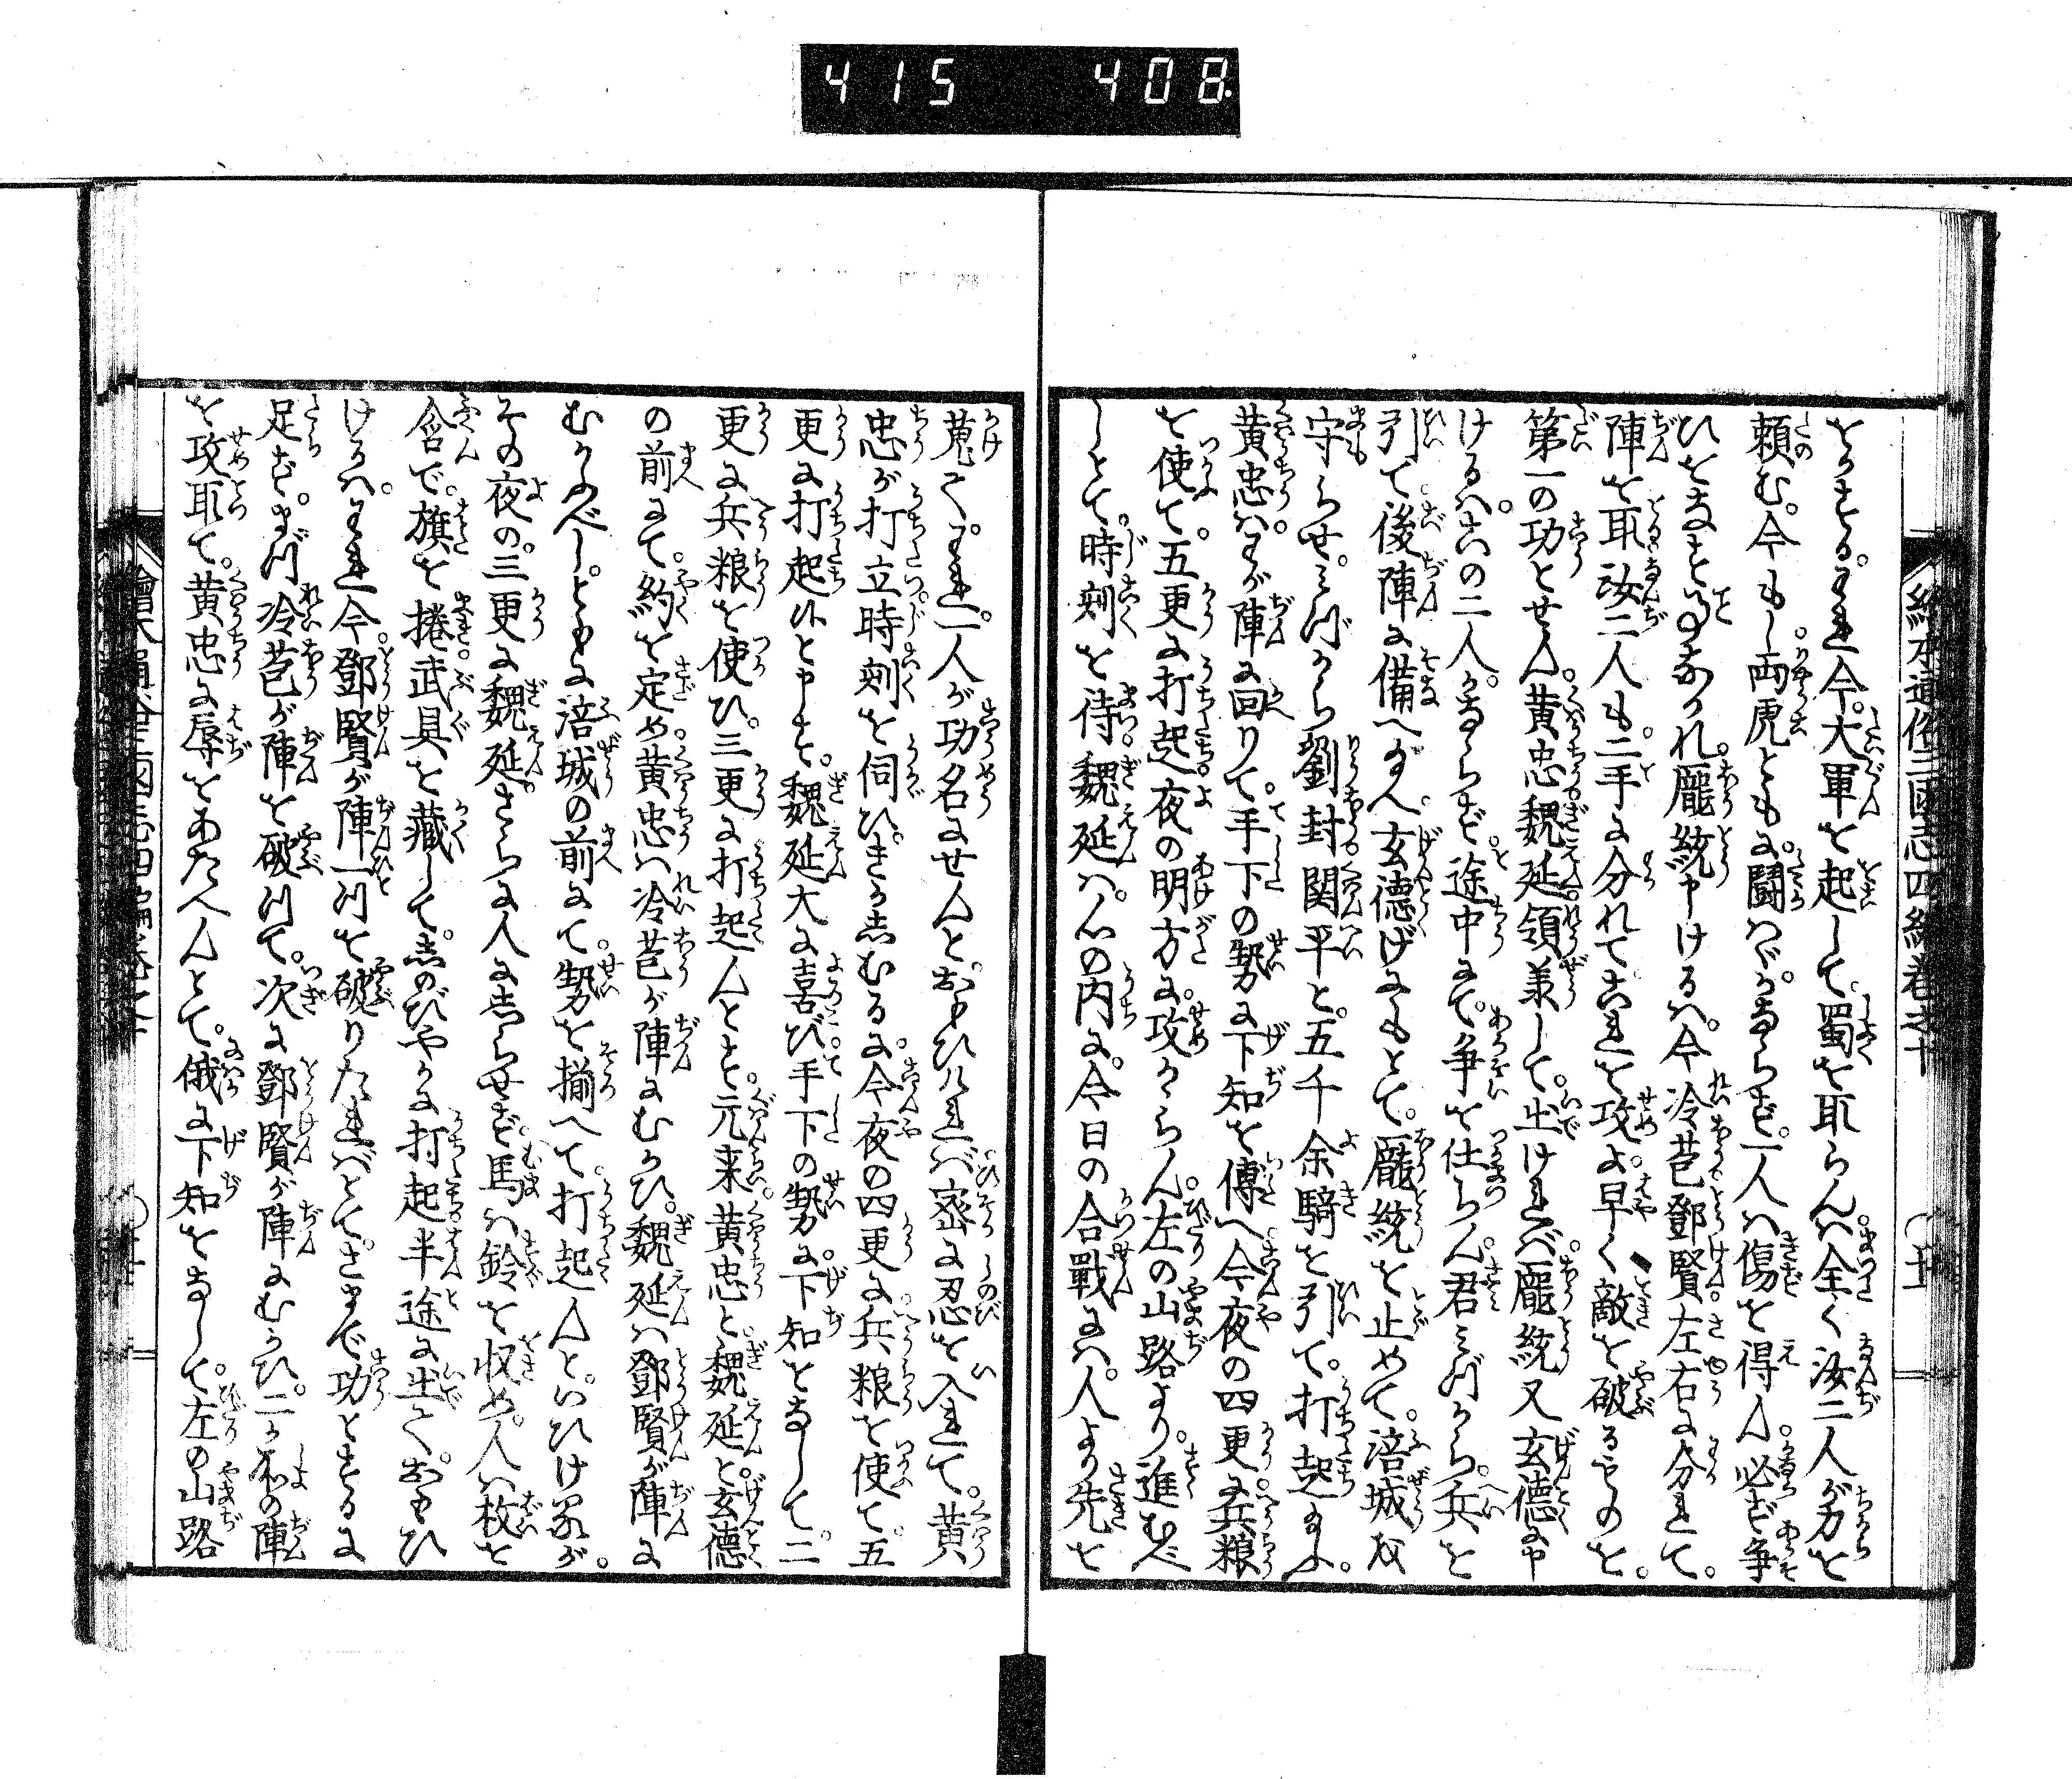 415 408
繪本通俗三國志四編卷之十
をかさる。われ今。大軍を起して。蜀を取らんハ。全く汝二人が力を
頼む。今もし。両虎ともに。闘ハゞ。かならず。一人ハ傷を得ん。必ず争
ひをなすことなかれ。龐統申けるハ。今冷苞鄧賢。左右に分れて。
陣を取。汝二人も。二手に分れてこれを攻よ。早く敵を破るものを。
第一の功とせん。黄忠魏延。領兼して。出ければ。龐統又玄徳に申
けるハ。この二人。かならず。途中にて。争を仕らん。君みづから。兵を
引て後陣に備へ玉へ。玄徳げにもとて。龐統を止めて。涪城を
守らせ。みづから劉封。関平と。五千余騎を引て。打起玉ふ。
黄忠ハ。わが陣に回りて。手下の勢に下知を傳へ。今夜の四更に。兵粮
を使て。五更に打起。夜の明方に。攻かゝらん。左の山路より。進むべ
しとて。時刻を待。魏延ハ。心の内に。今日の合戰にハ。人より先を
蒐て。われ一人が功名にせんと。おもひければ。密に忍を入れて。黄
忠が打立時刻を伺ひ。きかしむるに。今夜の四更に。兵粮を使て。五
更に打起ひと申す。魏延大に喜び。手下の勢に。下知をなして。二
更に兵粮を使ひ。三更に打起んとす。元来。黄忠と。魏延と。玄徳
の前にて。約を定め。黄忠ハ冷苞が陣にむかひ。魏延ハ鄧賢が陣に
むかふべし。ともに涪城の前にて。勢を揃へて。打起んと。いひけるが。
その夜の。三更に魏延。さらに人にしらせず。馬ハ鈴を収め。人ハ枚を
含で。旗を捲。武具を藏して。しのびやかに打起。半途に出て。おもひ
けるハ。われ今。鄧賢が陣一つを破りたればとて。さまで功とするに
足ず。まづ冷苞が陣を破つて。次に鄧賢が陣にむかひ。二か所の陣
を攻取て。黄忠に辱をあたへんとて。俄に下知をなして。左の山路